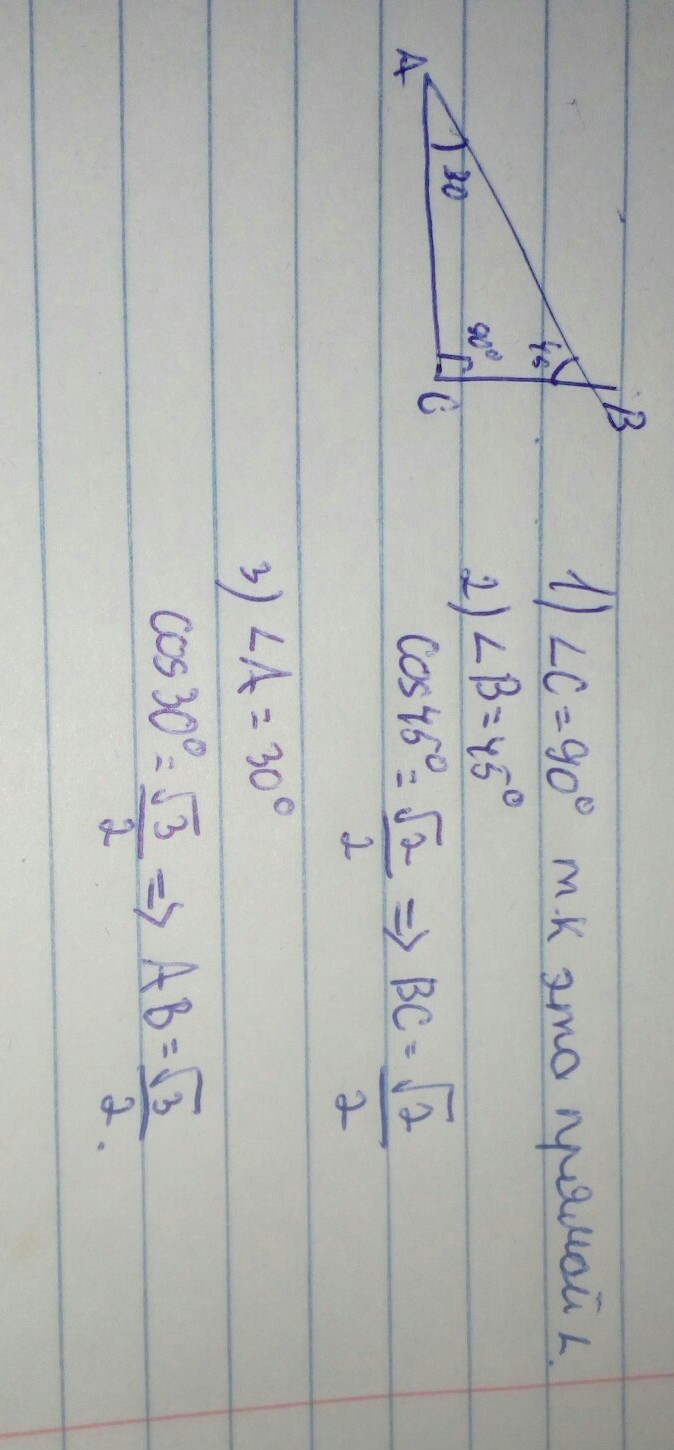 B
45
A 30 90°
C
1) ∠C = 90° т.к это прямой ∟.
2) ∠B = 45°
cos 45° = √2/2 => BC = √2/2
3) ∠A = 30°
cos 30° = √3/2 => AB = √3/2.